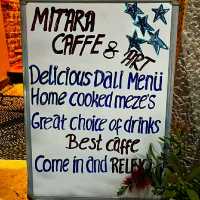 MITARA
CAFFE & ART
Delicious Dali Menü
Home cooked meze's
Great choice of drinks
Best caffe
Come in and RELEX